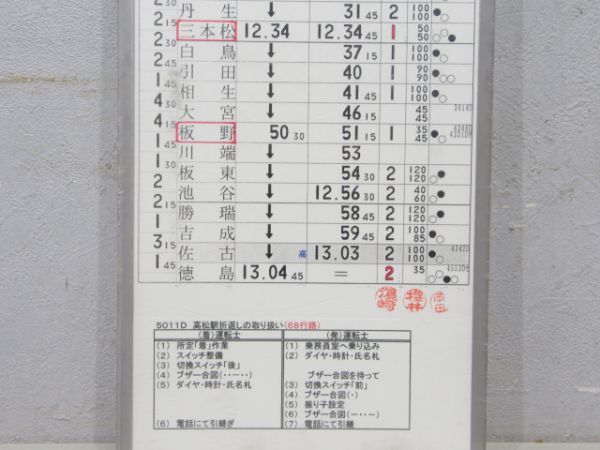 丹生 ↓ 31 45 2 100 100
2 15 三本松 12.34 12.34 45 1 50 50
2 30 白鳥 ↓ 37 15 1 100 100
2 45 引田 ↓ 40 1 90 90
1 45 相生 ↓ 41 45 1 100 100
4 30 大宮 ↓ 46 15 45 45
4 15 板野 50 30 51 15 1 35 45
1 45 川端 ↓ 53
1 30 板東 ↓ 54 30 2 120 120
2 池谷 ↓ 12.56 30 2 40 60
2 15 勝瑞 ↓ 58 45 2 120 120
1 吉成 ↓ 59 45 2 100 85
3 15 佐古 ↓ 高 13.03 2 100 100 4342D
1 45 徳島 13.04 45 = 2 35
濱崎 櫻井 吉田
5011D 高松駅折返しの取り扱い(68行路)
(着)運転士 (発)運転士
(1) 所定「着」作業 (1) 乗務員室へ乗り込み
(2) スイッチ整備 (2) ダイヤ・時計・氏名札
(3) 切換スイッチ「後」
(4) ブザー合図(・・－・・) ブザー合図を待って
(5) ダイヤ・時計・氏名札 (3) 切換スイッチ「前」
(4) ブザー合図(・)
(5) 振り子設定
(6) ブザー合図(－・・－)
(6) 電話にて引継ぎ (7) 電話にて引継